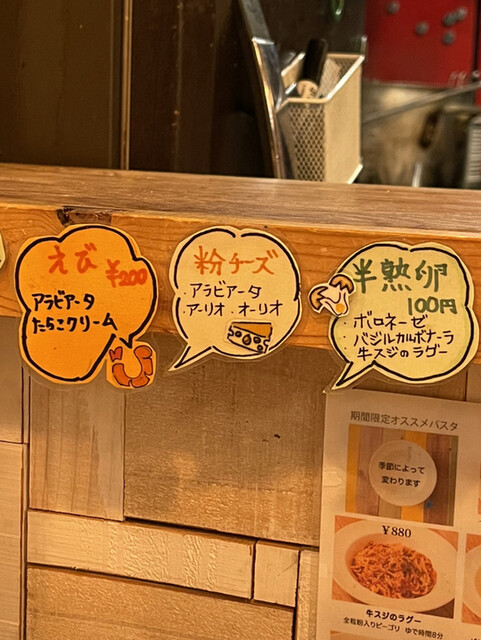 えび
¥200
アラビアータ
たらこクリーム
粉チーズ
・アラビアータ
・アーリオ・オーリオ
半熟卵
100円
・ボロネーゼ
・バジルカルボナーラ
・牛スジのラグー
期間限定オススメパスタ
季節によって
変わります
¥880
牛スジのラグー
全粒粉入りピーゴリ ゆで時間8分